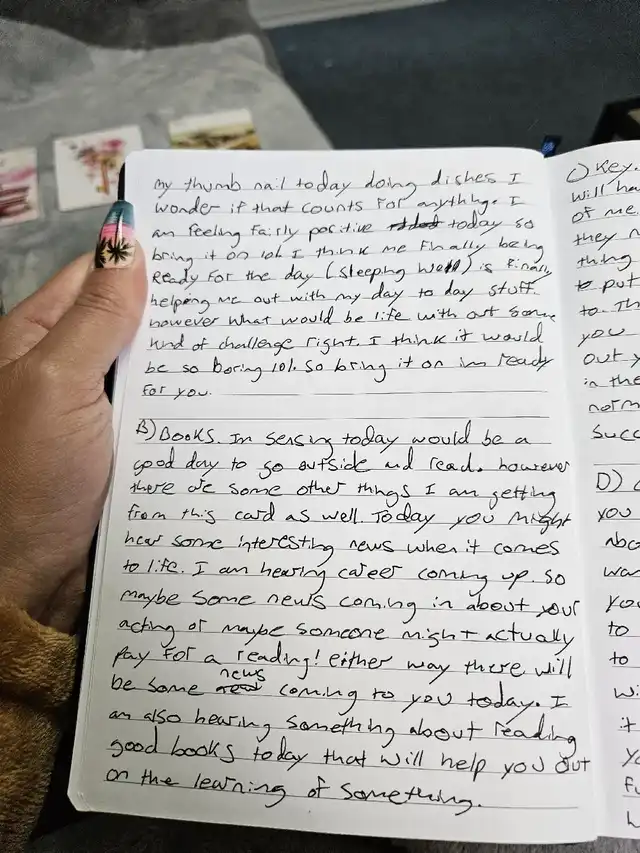 my thumb nail today doing dishes I
wonder if that counts for anything. I
am feeling fairly positive today so
bring it on lol I think me finally being
Ready for the day (sleeping well) is finally
helping me out with my day to day stuff.
however what would be life with out some
kind of challenge right. I think it would
be so boring lol. So bring it on im ready
for you.
B) Books. Im sensing today would be a
good day to go outside and read. however
there are some other things I am getting
from this card as well. Today you might
hear some interesting news when it comes
to life. I am hearing career coming up. So
maybe some news coming in about your
acting or maybe someone might actually
pay for a reading! either way there will
be some news coming to you today. I
am also hearing something about reading
good books today that will help you out
on the learning of something.
C) Key.
will ha
of me
they n
thing
to put
to th
you
out y
in the
norm
Succ
D)
you
abo
wan
you
to
to
wi
it
yo
fu
h